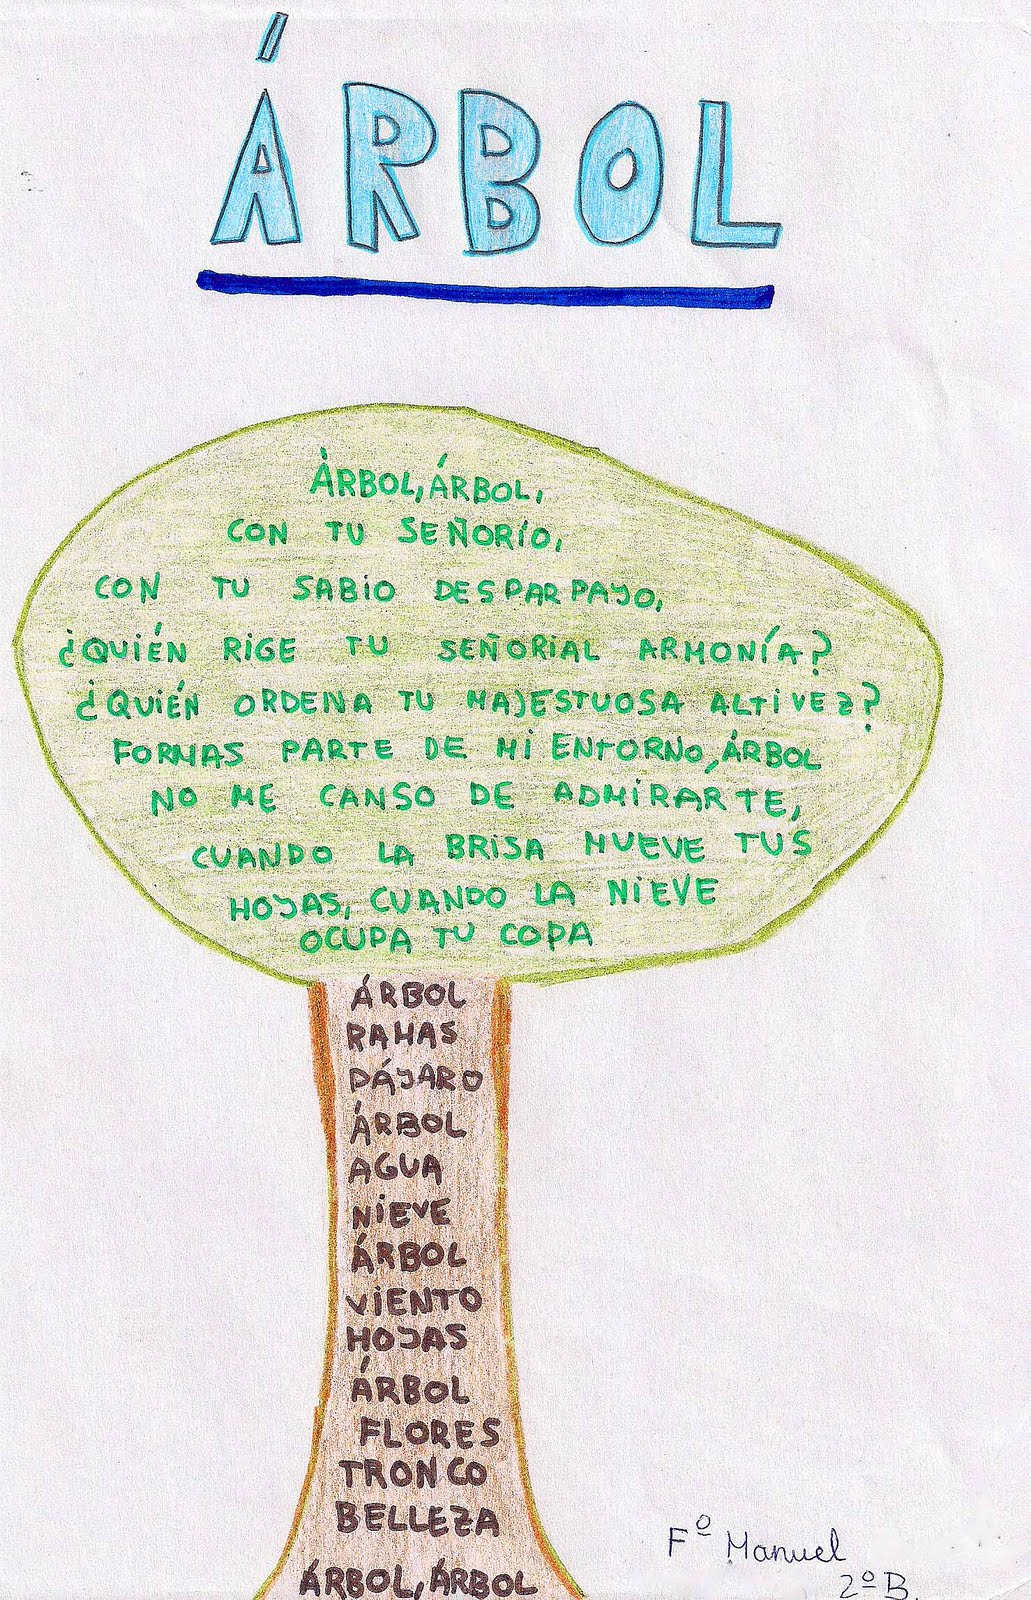 ÁRBOL
ÁRBOL, ÁRBOL,
CON TU SEÑORÍO,
CON TU SABIO DESPARPAJO,
¿QUIÉN RIGE TU SEÑORIAL ARMONÍA?
¿QUIÉN ORDENA TU MAJESTUOSA ALTIVEZ?
FORMAS PARTE DE MI ENTORNO, ÁRBOL
NO ME CANSO DE ADMIRARTE,
CUANDO LA BRISA MUEVE TUS
HOJAS, CUANDO LA NIEVE
OCUPA TU COPA
ÁRBOL
RAMAS
PÁJARO
ÁRBOL
AGUA
NIEVE
ÁRBOL
VIENTO
HOJAS
ÁRBOL
FLORES
TRONCO
BELLEZA
ÁRBOL, ÁRBOL
Fº Manuel
2º B.